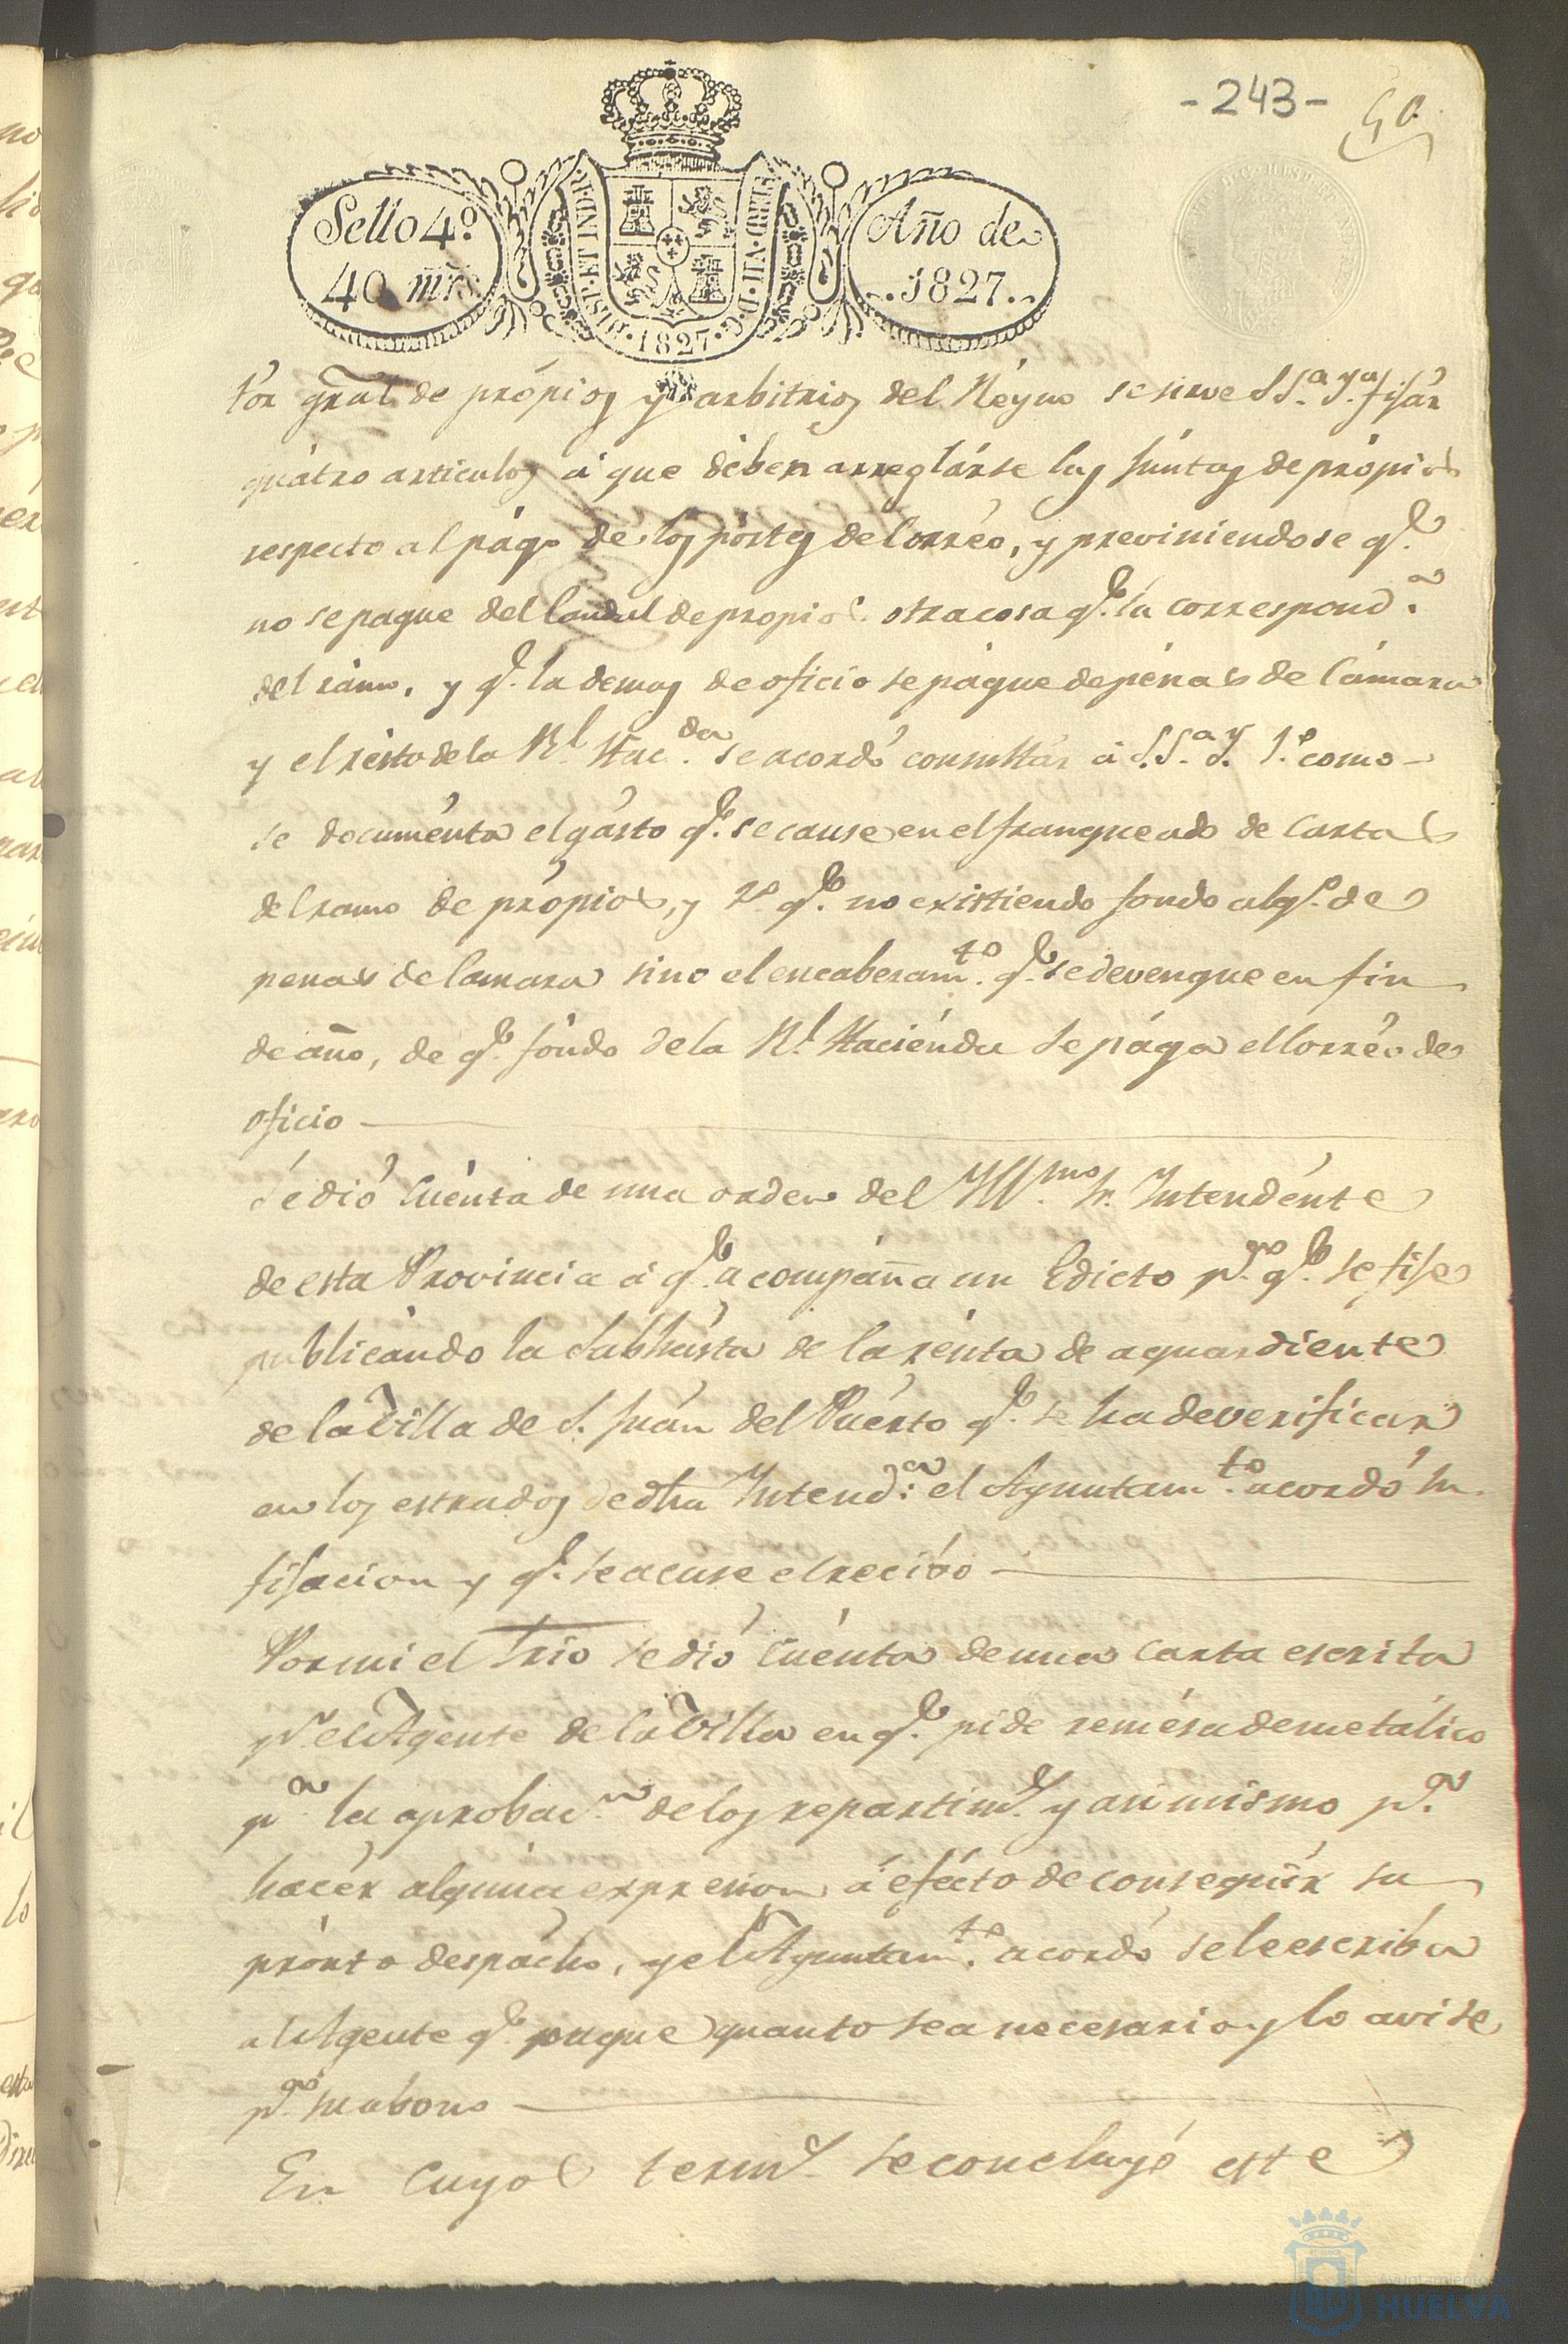 -243-
Sello 4º
40 mrs
HISP. ET IND. R.
1827
FERD. VII. D. G.
Año de
1827
tor gral de própios y arbitrios del Réyno se sirve S Sª Yª fijár
quátro articulos á que dében arreglárse las Júntas de própios
respecto al págo de los pórtes de Corréo, y previniendose qe.
no se pague del Caudal de propios otra cosa qe. la correspondª
del rámo, y qe. la demas de oficio se págue de pénas de Cámara
y el résto de la Rl. Hacda. se acordó consultár á S.Sª Y. 1º como
se documénta el gásto qe. se cause en el franqueado de Cartas
del ramo de própios, y 2º qe. no existiendo fondo algº. de
penas de Camara sino el encabesamto. qe. se devengue en fin
de año, de qe. fóndo de la Rl. Haciénda se pága el Corréo de
oficio
Se dió Cuénta de una orden del Yllmo. Sr. Yntendénte
de esta Provincia á qe. acompáña un Edicto pª. qe. se fije
publicándo la Subhásta de la rénta de aguardiénte
de la Villa de S. Juán del Puérto qe. se ha de verificar
en los estrados de dha Yntendª: el Ayuntamto. acordó su
fijacion y qe. se acuse el recibo
Por mi el Srio se dió Cuénta de una carta escrita
pr. el Agente de la Villa en qe. pide remésa de metálico
pª la aprobacn de los repartims. y asi mismo pª.
hacér algúna expresion á efécto de conseguír su
prónto despácho, y el Ayuntamto. acordó se le escriba
al Agente qe. pague quanto sea necesario y lo avise
pª. su abono
En Cuyos terms. se concluyó este
Ayuntamiento de
HUELVA